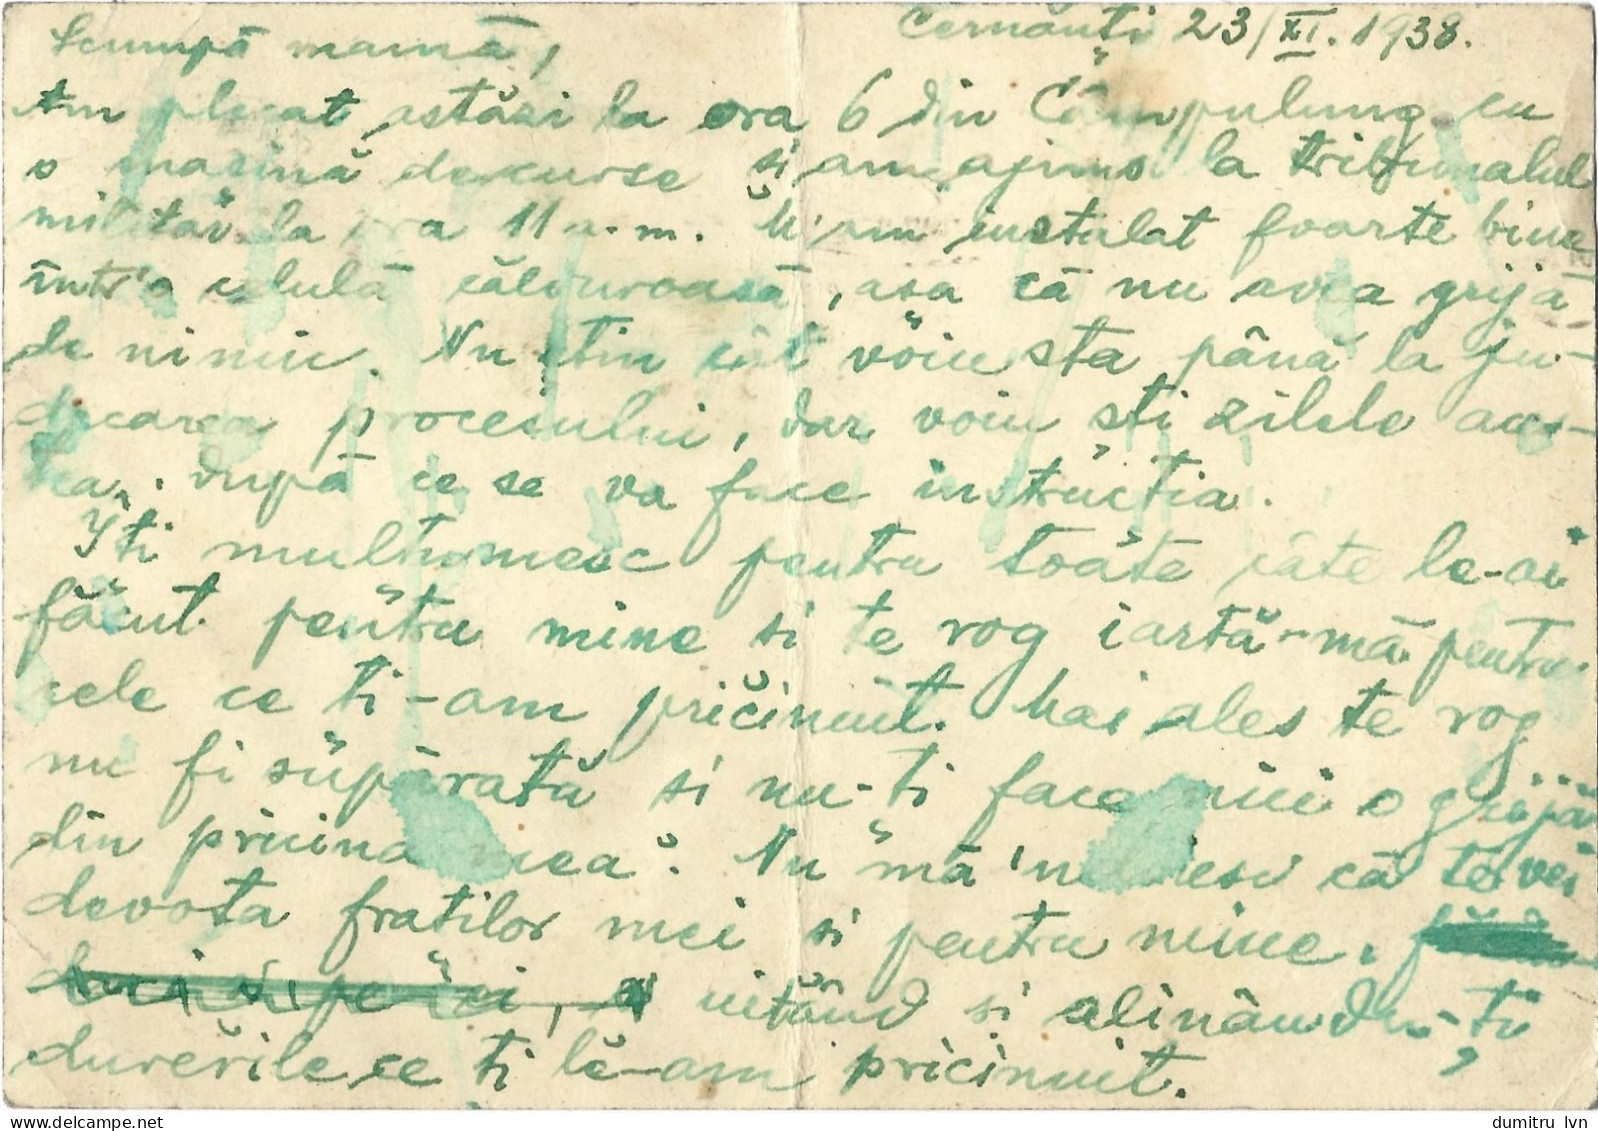 Cernăuți 23/XI.1938.
Scumpă mamă,
Am plecat astăzi la ora 6 din Câmpulung cu
o mașină de curse si am ajuns la tribunalul
militar la ora 11 a.m. M'am instalat foarte bine
într'o celulă călduroasă, asa că nu avea grijă
de nimic. Nu stiu cât voiu sta până la ju-
decarea procesului, dar voiu sti zilele aces-
tea, după ce se va face instructia.
Iti multumesc pentru toate câte le-ai
făcut pentru mine si te rog iartă-mă pentru
cele ce ti-am pricinuit. Mai ales te rog
nu fi supărată si nu-ti face nici o grijă
din pricina mea. Nu mă 'ndoiesc că te vei
devota fratilor mei si pentru mine,
uitând si alinându-ți
durerile ce ti le-am pricinuit.
dumitru lvn